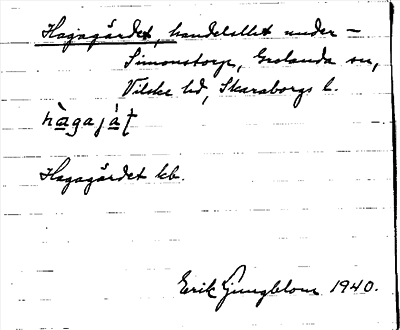 Hagagärdet, handelslht under –
Simonstorp, Grolanda sn,
Vilske hd, Skaraborgs l.
hàgajàṭ
Hagagärdet kb.
Erik Ljungblom 1940.